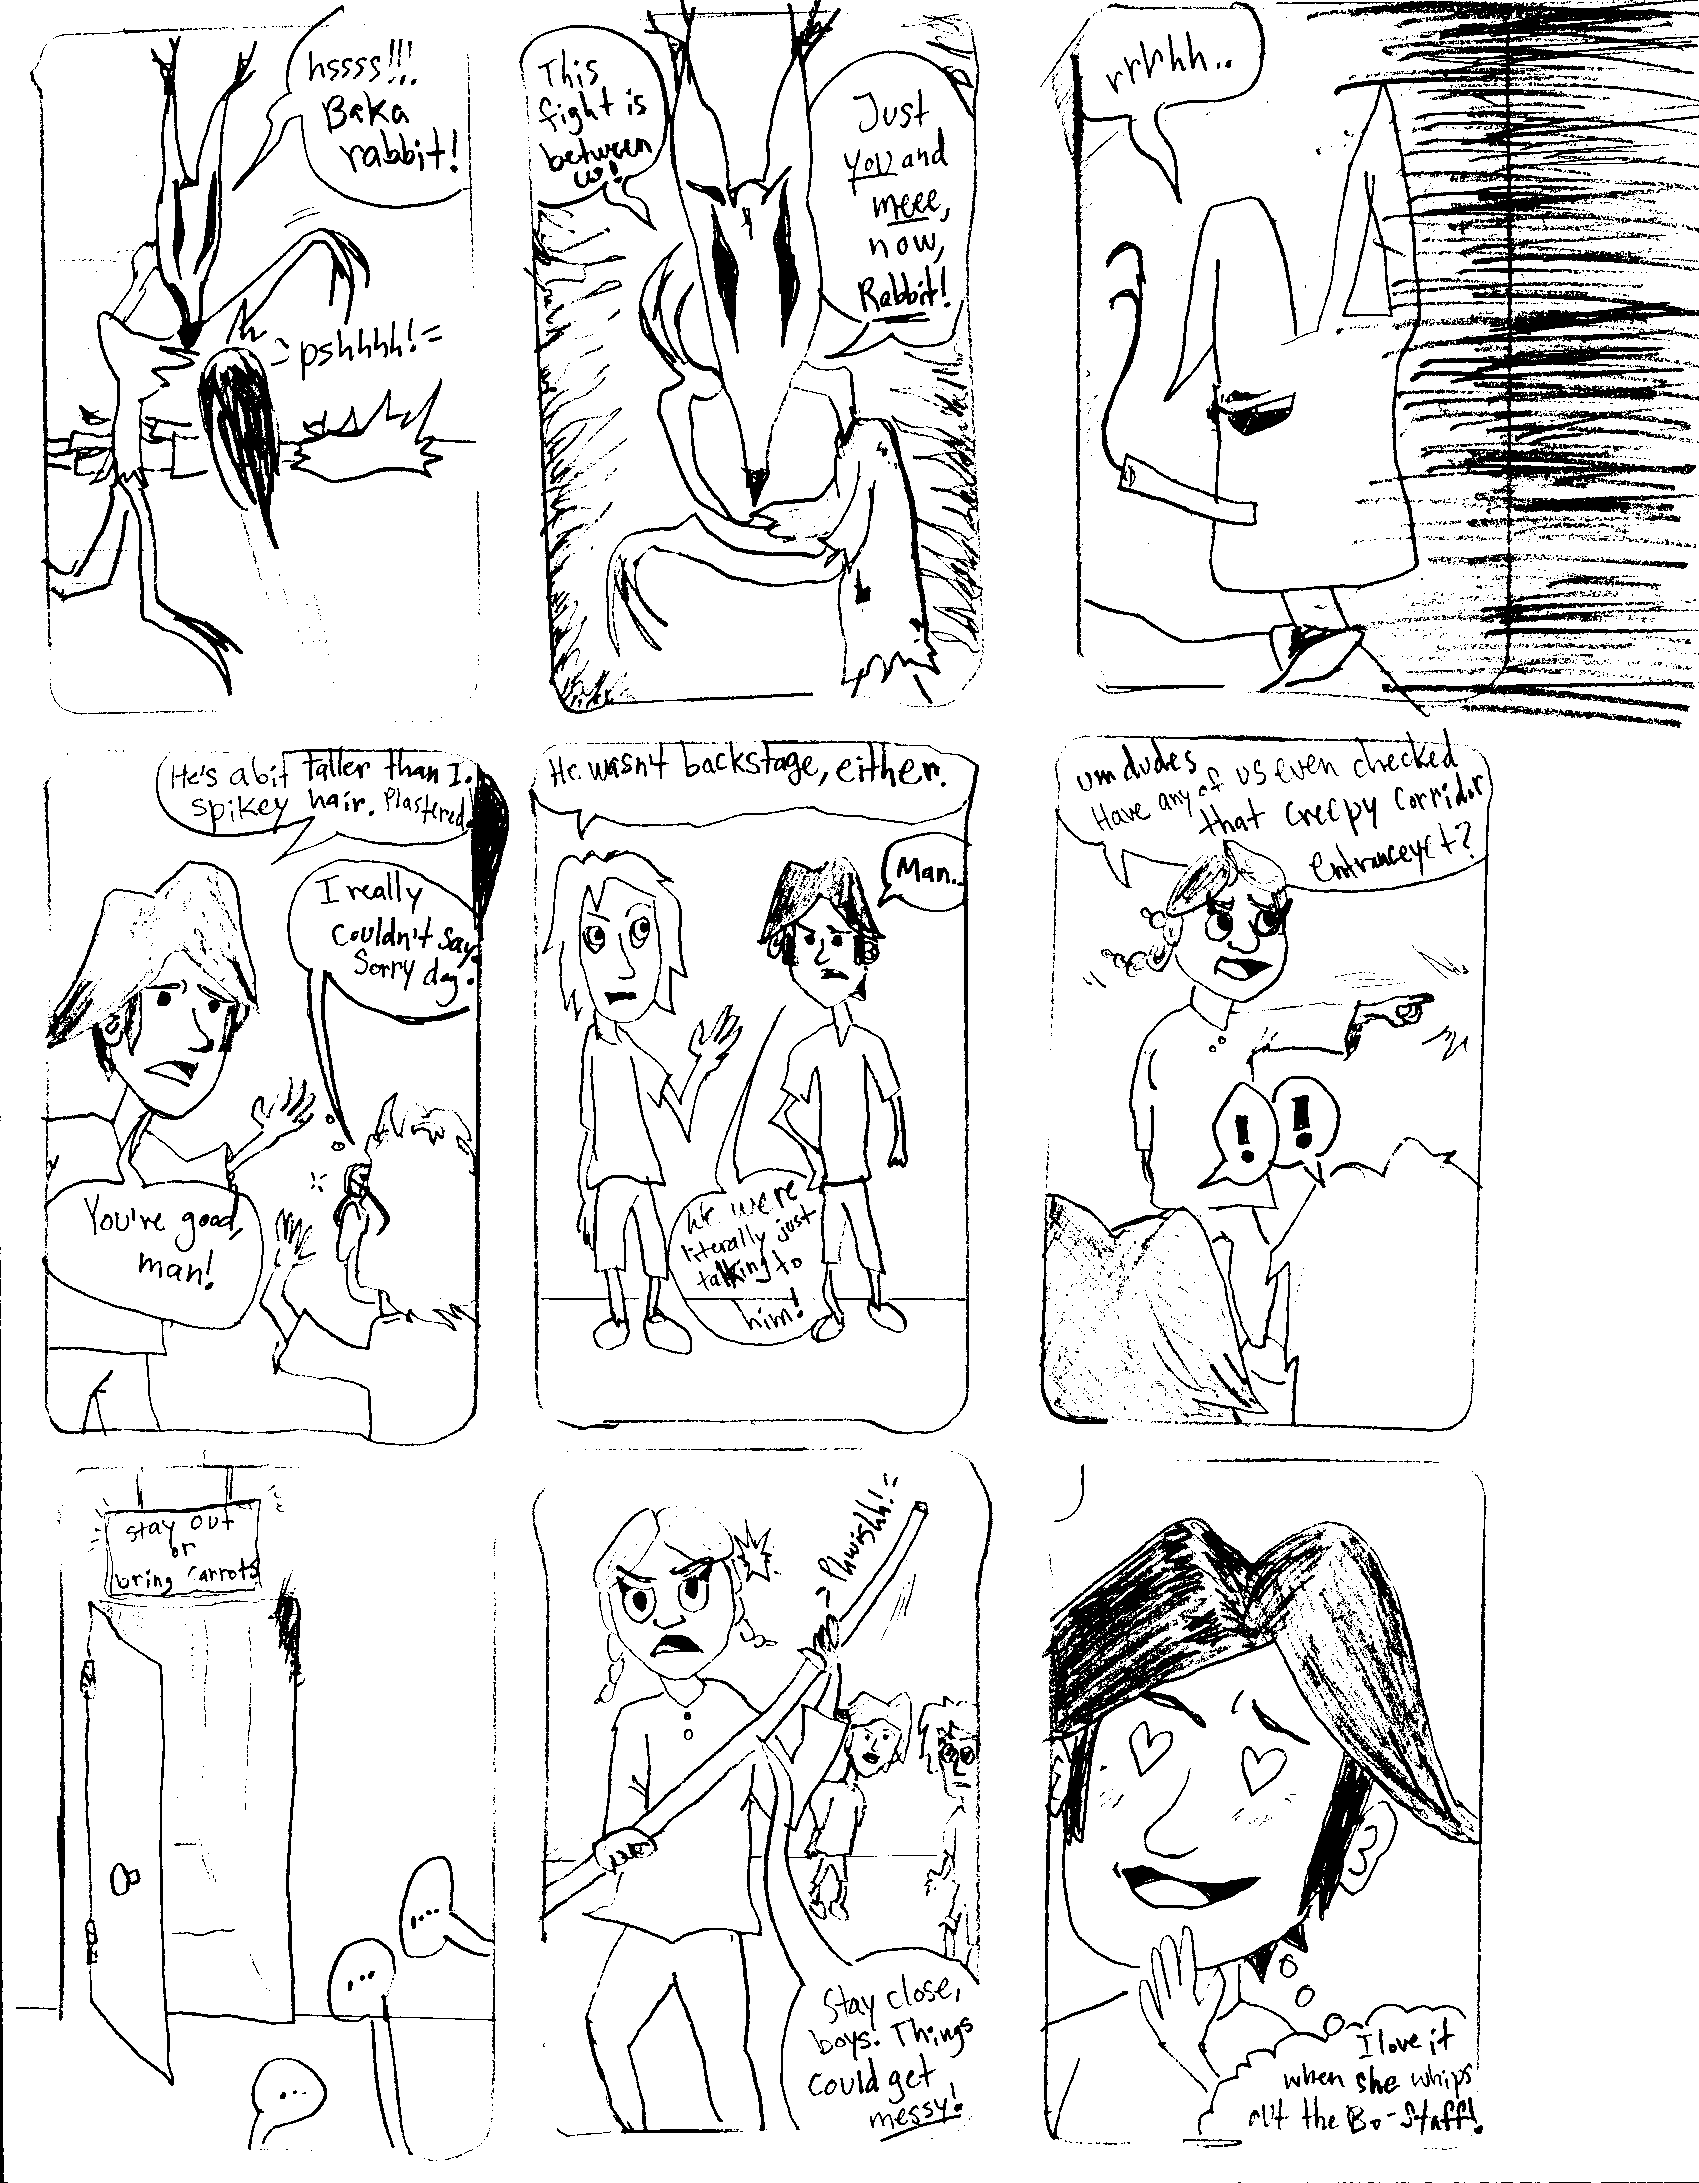 hssss!!!
Baka
rabbit!
pshhhh!
This
fight is
between
us!
Just
you and
meee,
now,
Rabbit!
rrrhh..
He's a bit taller than I.
spikey hair. Plastered.
I really
couldn't say.
Sorry dog.
You're good,
man!
He wasn't backstage, either.
Man..
we were
literally just
talking to
him!
um dudes
Have any of us even checked
that creepy corridor
entrance yet?
!
!
stay out
or
bring carrots
...
....
...
Phwishh!
Stay close,
boys. Things
could get
messy!
I love it
when she whips
out the Bo-staff!